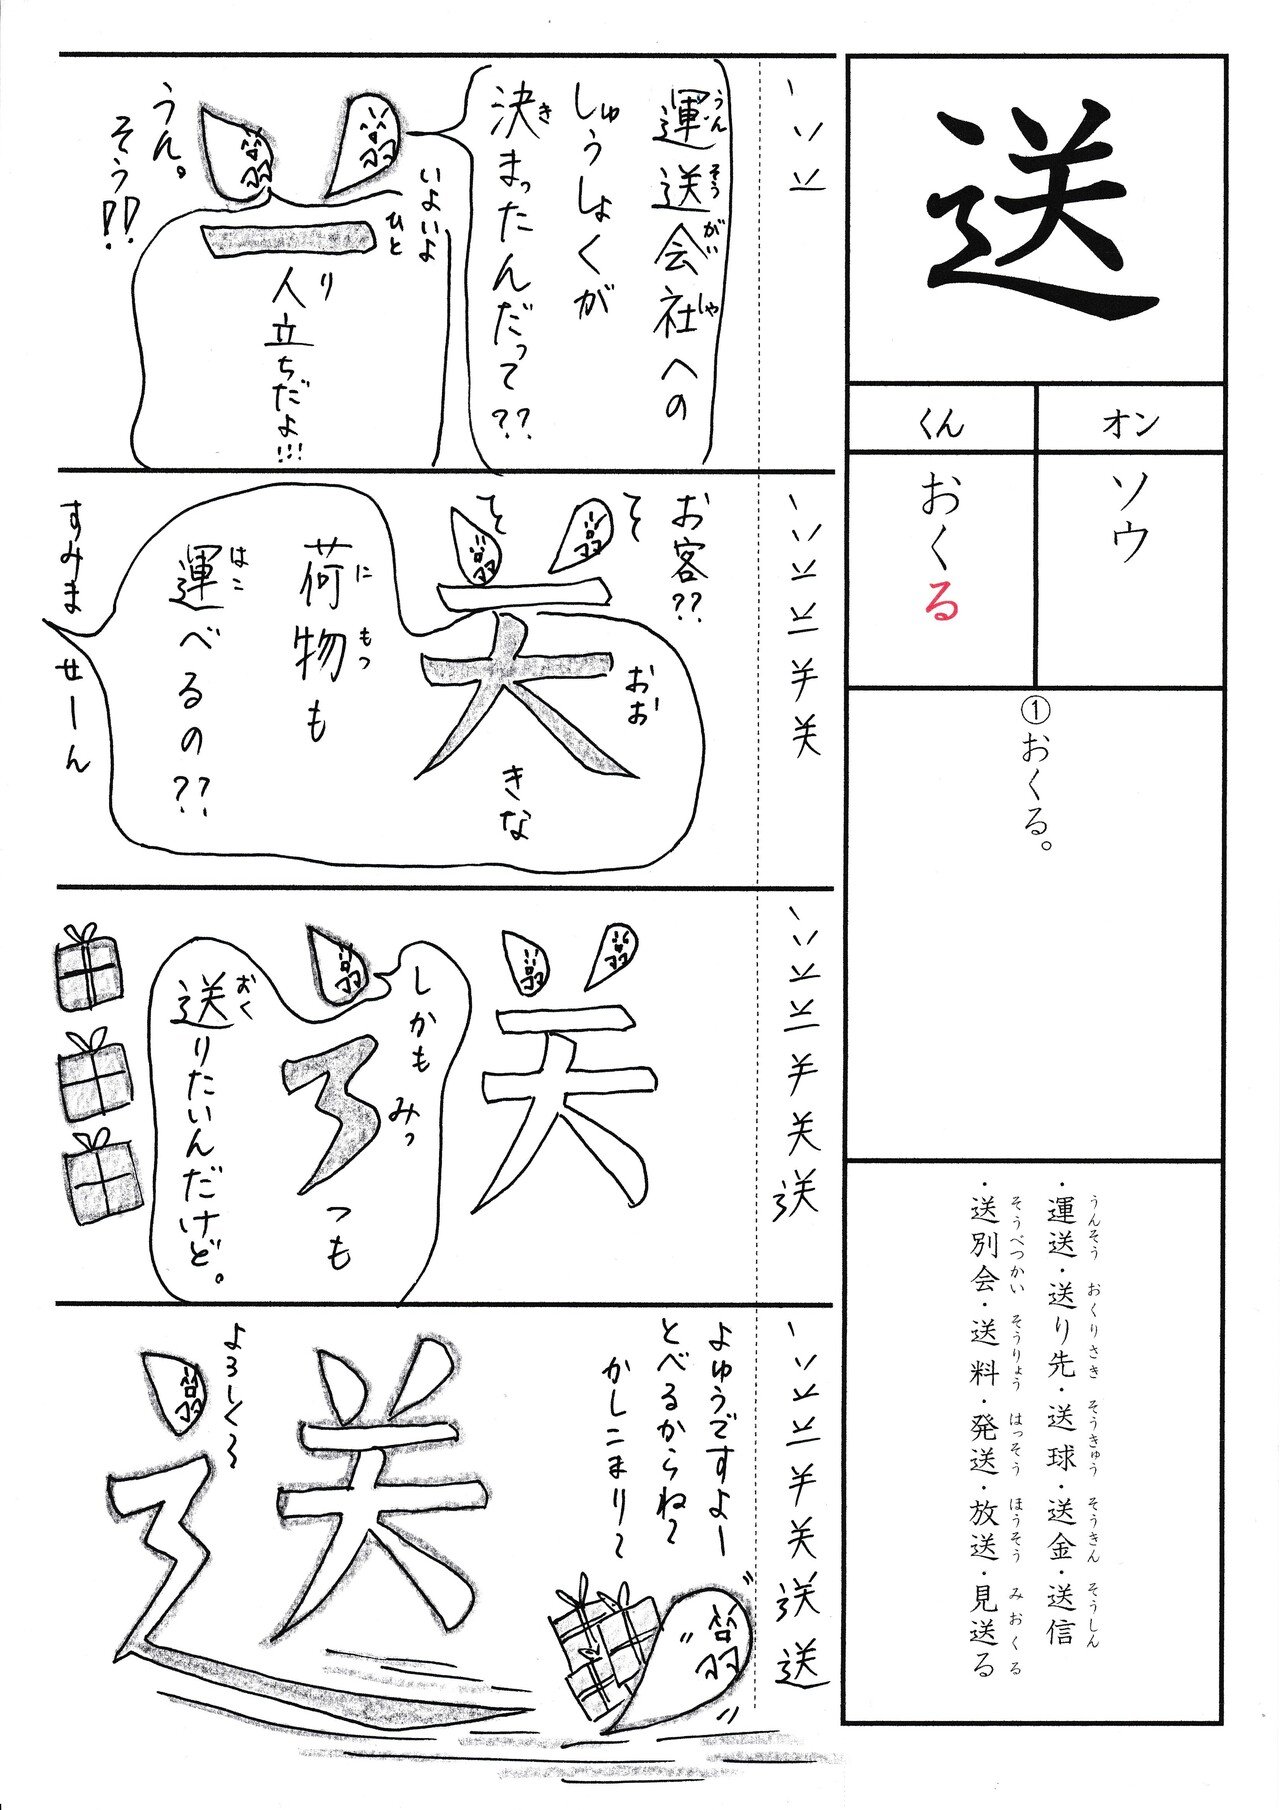 送
オン
くん
ソウ
おくる
①おくる。
・運送・送り先・送球・送金・送信
うんそう おくりさき そうきゅう そうきん そうしん
・送別会・送料・発送・放送・見送る
そうべつかい そうりょう はっそう ほうそう みおくる
運送会社への
うんそうがいしゃ
しゅうしょくが
決まったんだって??
き
いよいよ
ひと
一人立ちだよ!!!
り
うん。
そう!!
お客??
そ
そ
おお
大きな
荷物も
にもつ
運べるの??
はこ
すみませーん
しかも
みっ
つも
送りたいんだけど。
おく
よゆうですよー
とべるからね〜
かしこまり〜
よろしく〜
送